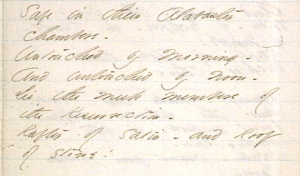 Safe in their Alabaster
Chambers -
Untouched by Morning -
And untouched by Noon -
Lie the meek members of
the Resurrection -
Rafter of Satin - and Roof
of Stone!